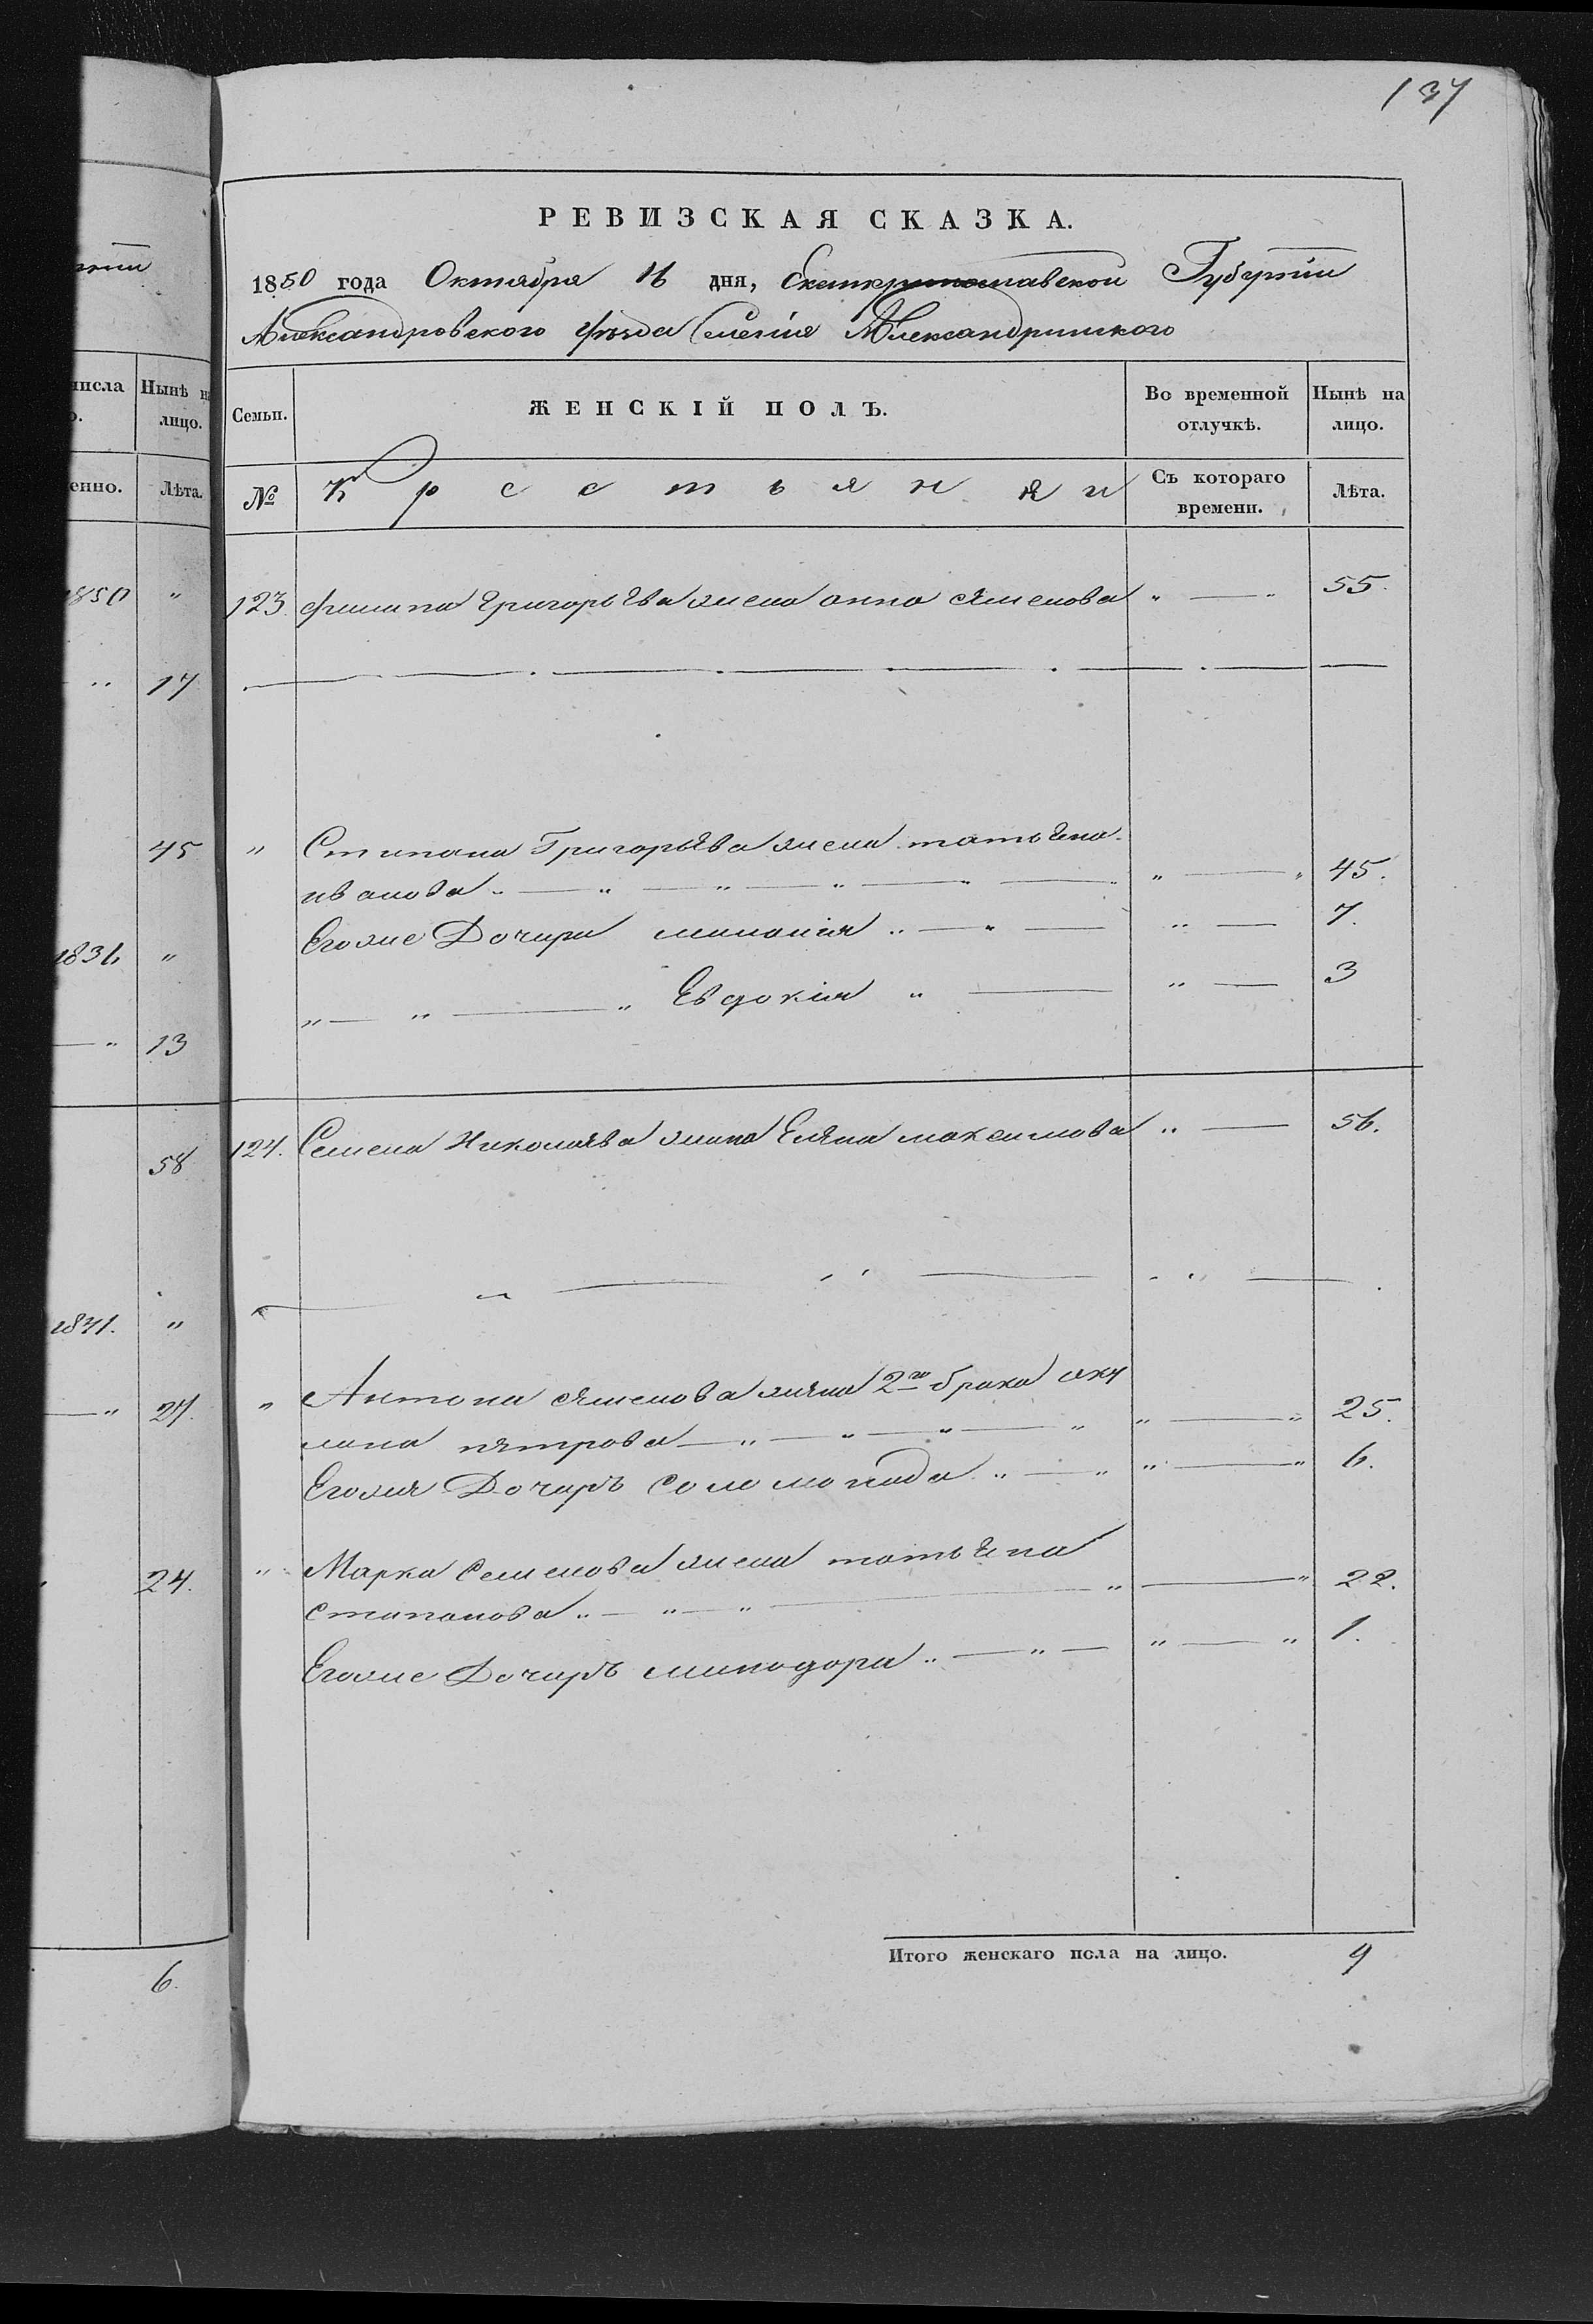 137
РЕВИЗСКАЯ СКАЗКА.
1850 года Октября 16 дня, Екатеринославской Губернии
Александровского уѣзда Селенія Александринского
Семьи.
ЖЕНСКІЙ ПОЛЪ.
Во временной отлучкѣ.
Нынѣ на лицо.
№
Крестьяняи
Съ котораго времени.
Лѣта.
123. филипа григорьЕва жена анна сЯменова " — " 55.
" Стипана ГригорьЕва жена татьЕна
иванова " — " — " — " — " — " 45.
Егоже Дочири меланія " — " — " — 7.
" — " — " Евдокія " — " — 3
124. Семена Николаява жина Еляна максимова " — 56.
" Антона сЯменова жяна 2го брака аку
лина пятрова — " — " — " — " " — " 25.
Егожя Дочирь соломонида " — " " — " 6.
" Марка семенова жена татьЕна
стапанова " — " — " — " — " 22.
Егоже Дочирь минодора " — " — " — " 1.
Итого женскаго пола на лицо. 9
числа
Нынѣ на
лицо.
енно.
Лѣта.
1850 "
" 17
45
1836 "
— " 13
58
1841. "
— " 27.
24.
6.